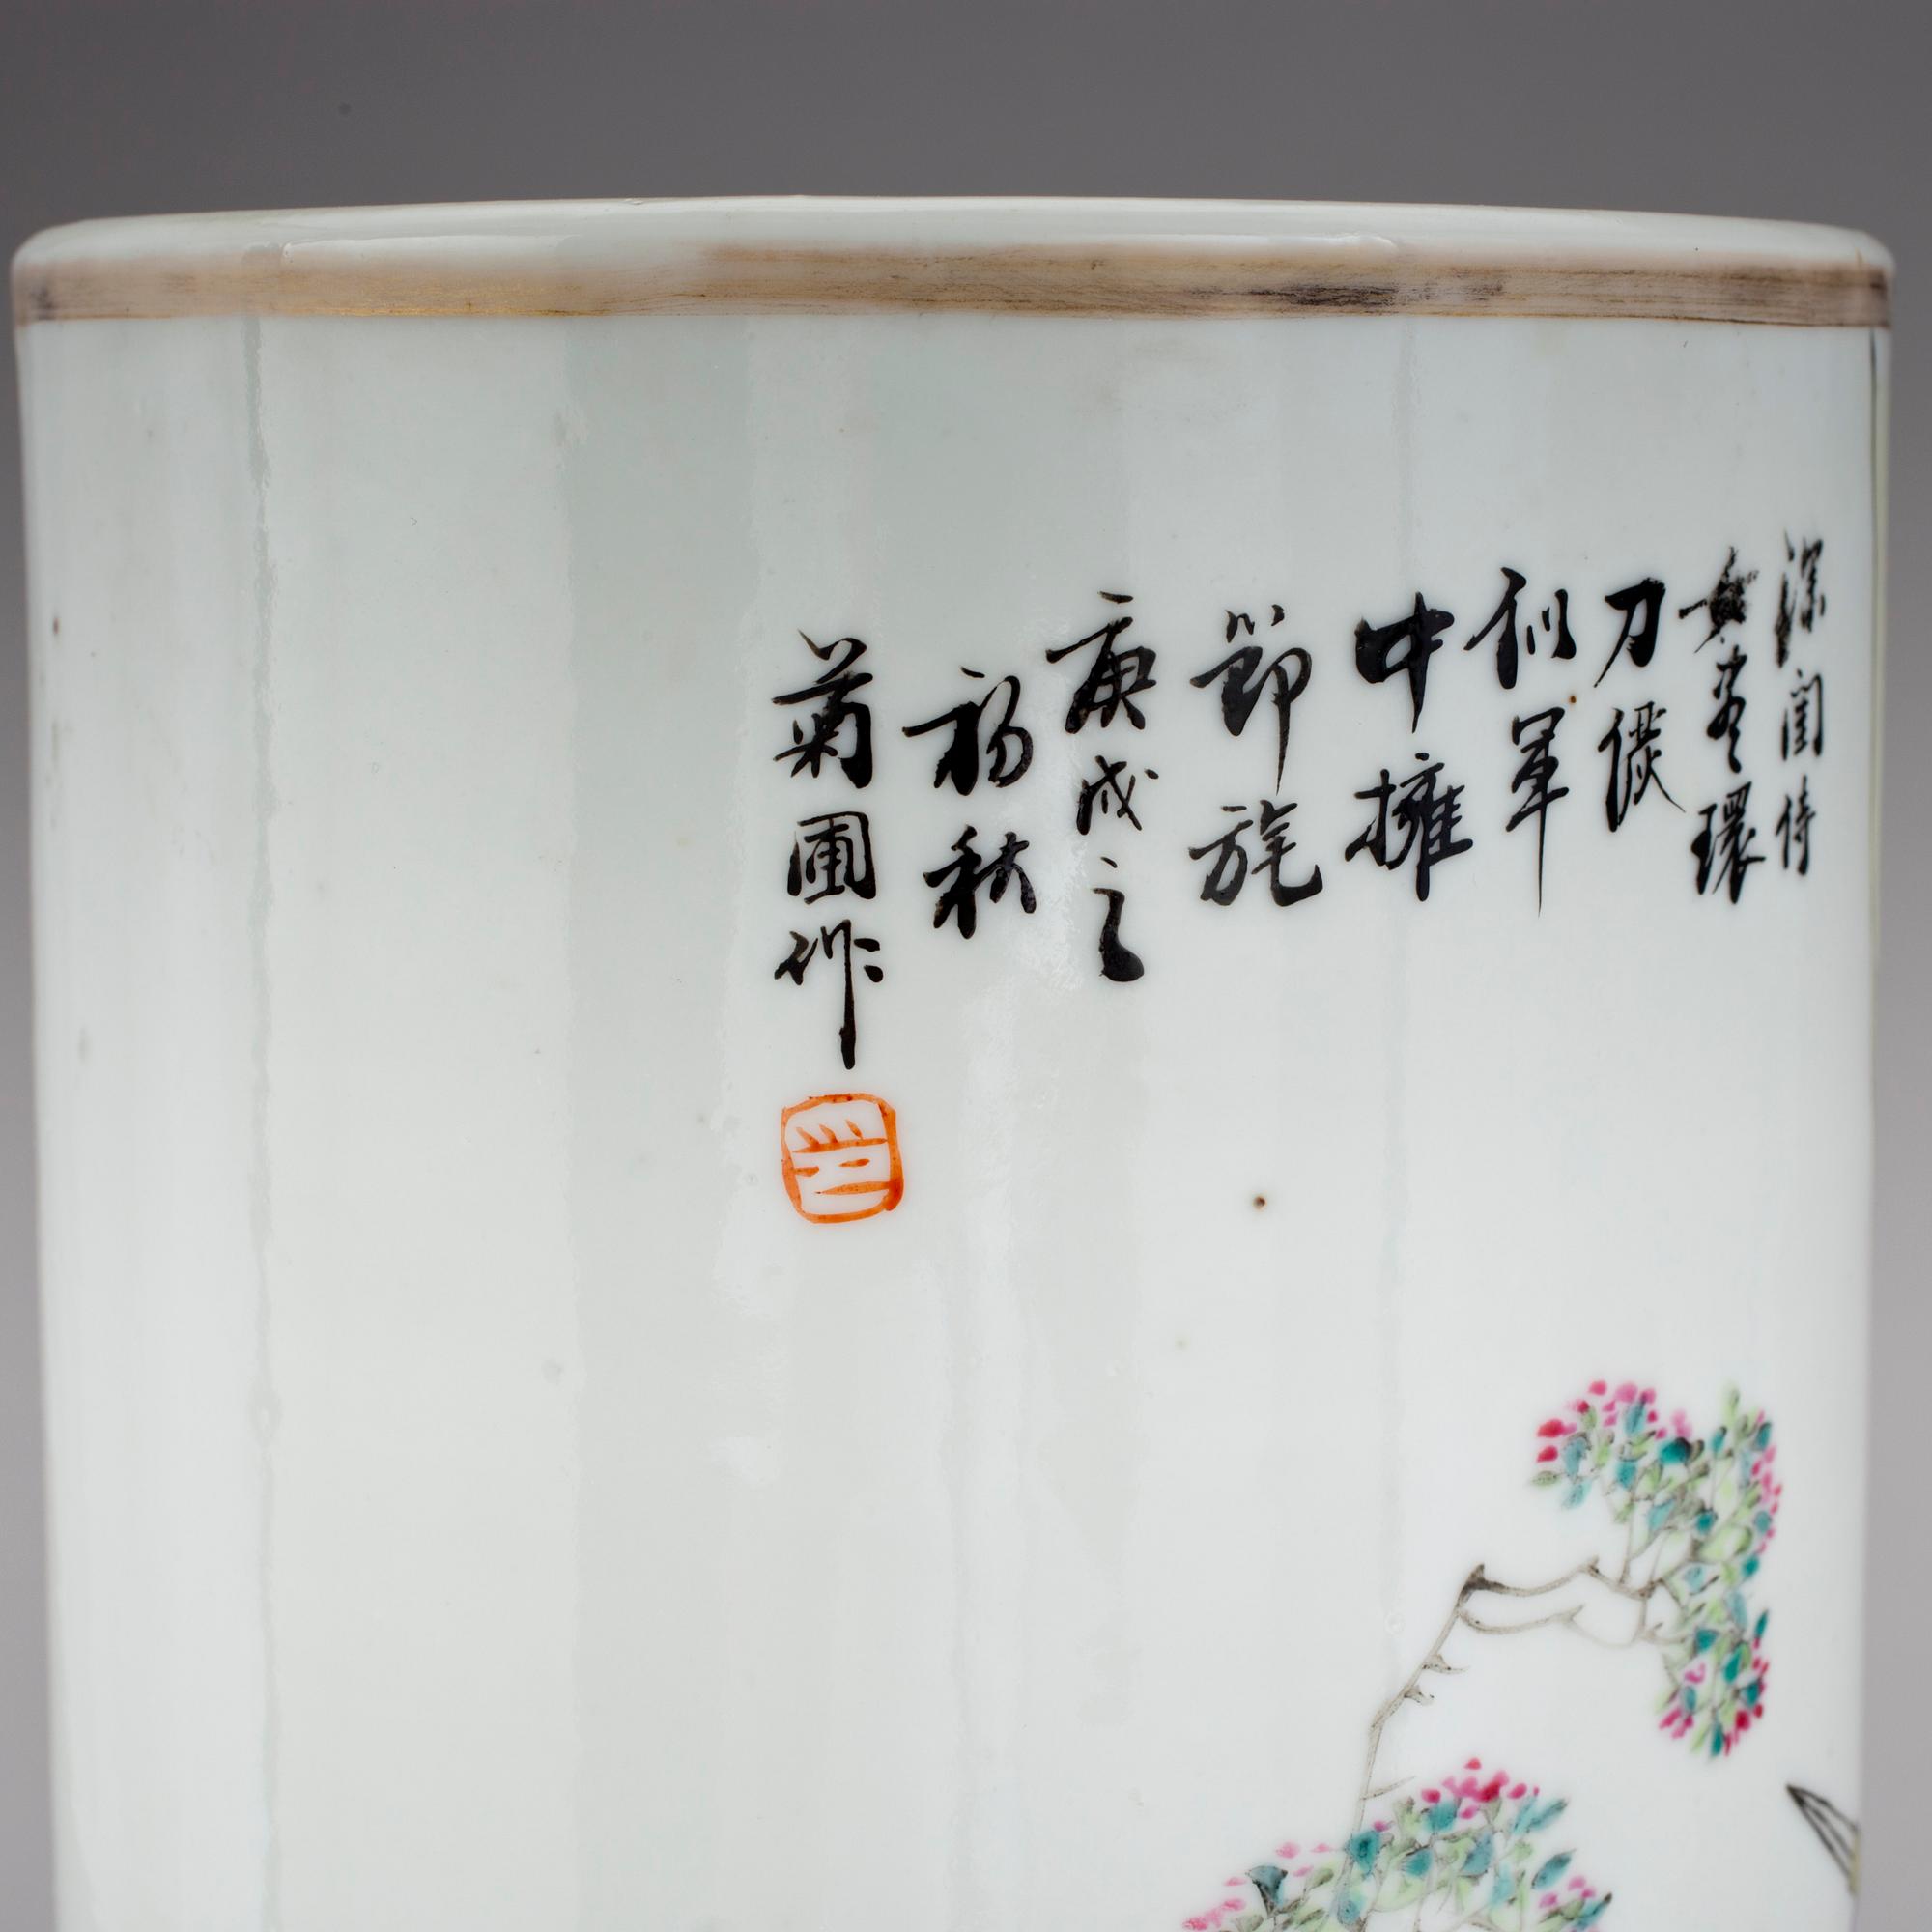 深闺侍
女盡環
刀儼
似軍
中擁
節旄
庚戌之
初秋
菊圃作